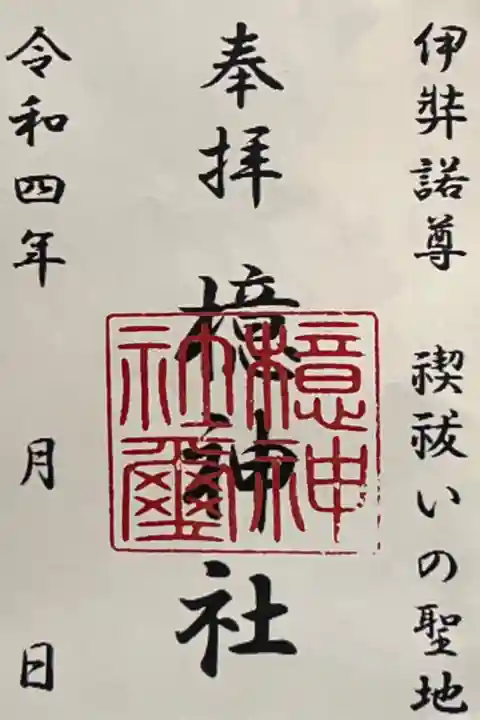 伊弉諾尊　禊祓いの聖地
奉拝　檍神社
檍神
社璽
令和四年　月　日